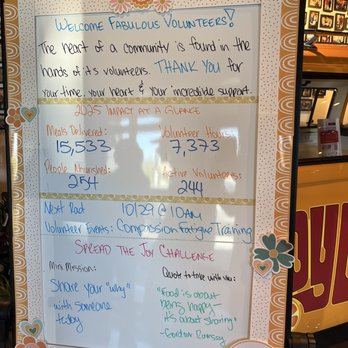 Welcome Fabulous Volunteers!
The heart of a community is found in the
hands of it's volunteers. THANK YOU for
your time, your heart & your incredible support.
2025 Impact at a Glance
Meals Delivered: Volunteer Hours:
15,533 7,373
People Nourished: Active Volunteers:
254 244
Next Pact 10/29 @ 10AM
Volunteer Events: Compassion Fatigue Training
Spread the Joy Challenge
Mini Mission: Quote to take with you:
Share your "why" "Food is about
with someone being happy—
today it's about sharing"
- Gordon Ramsay